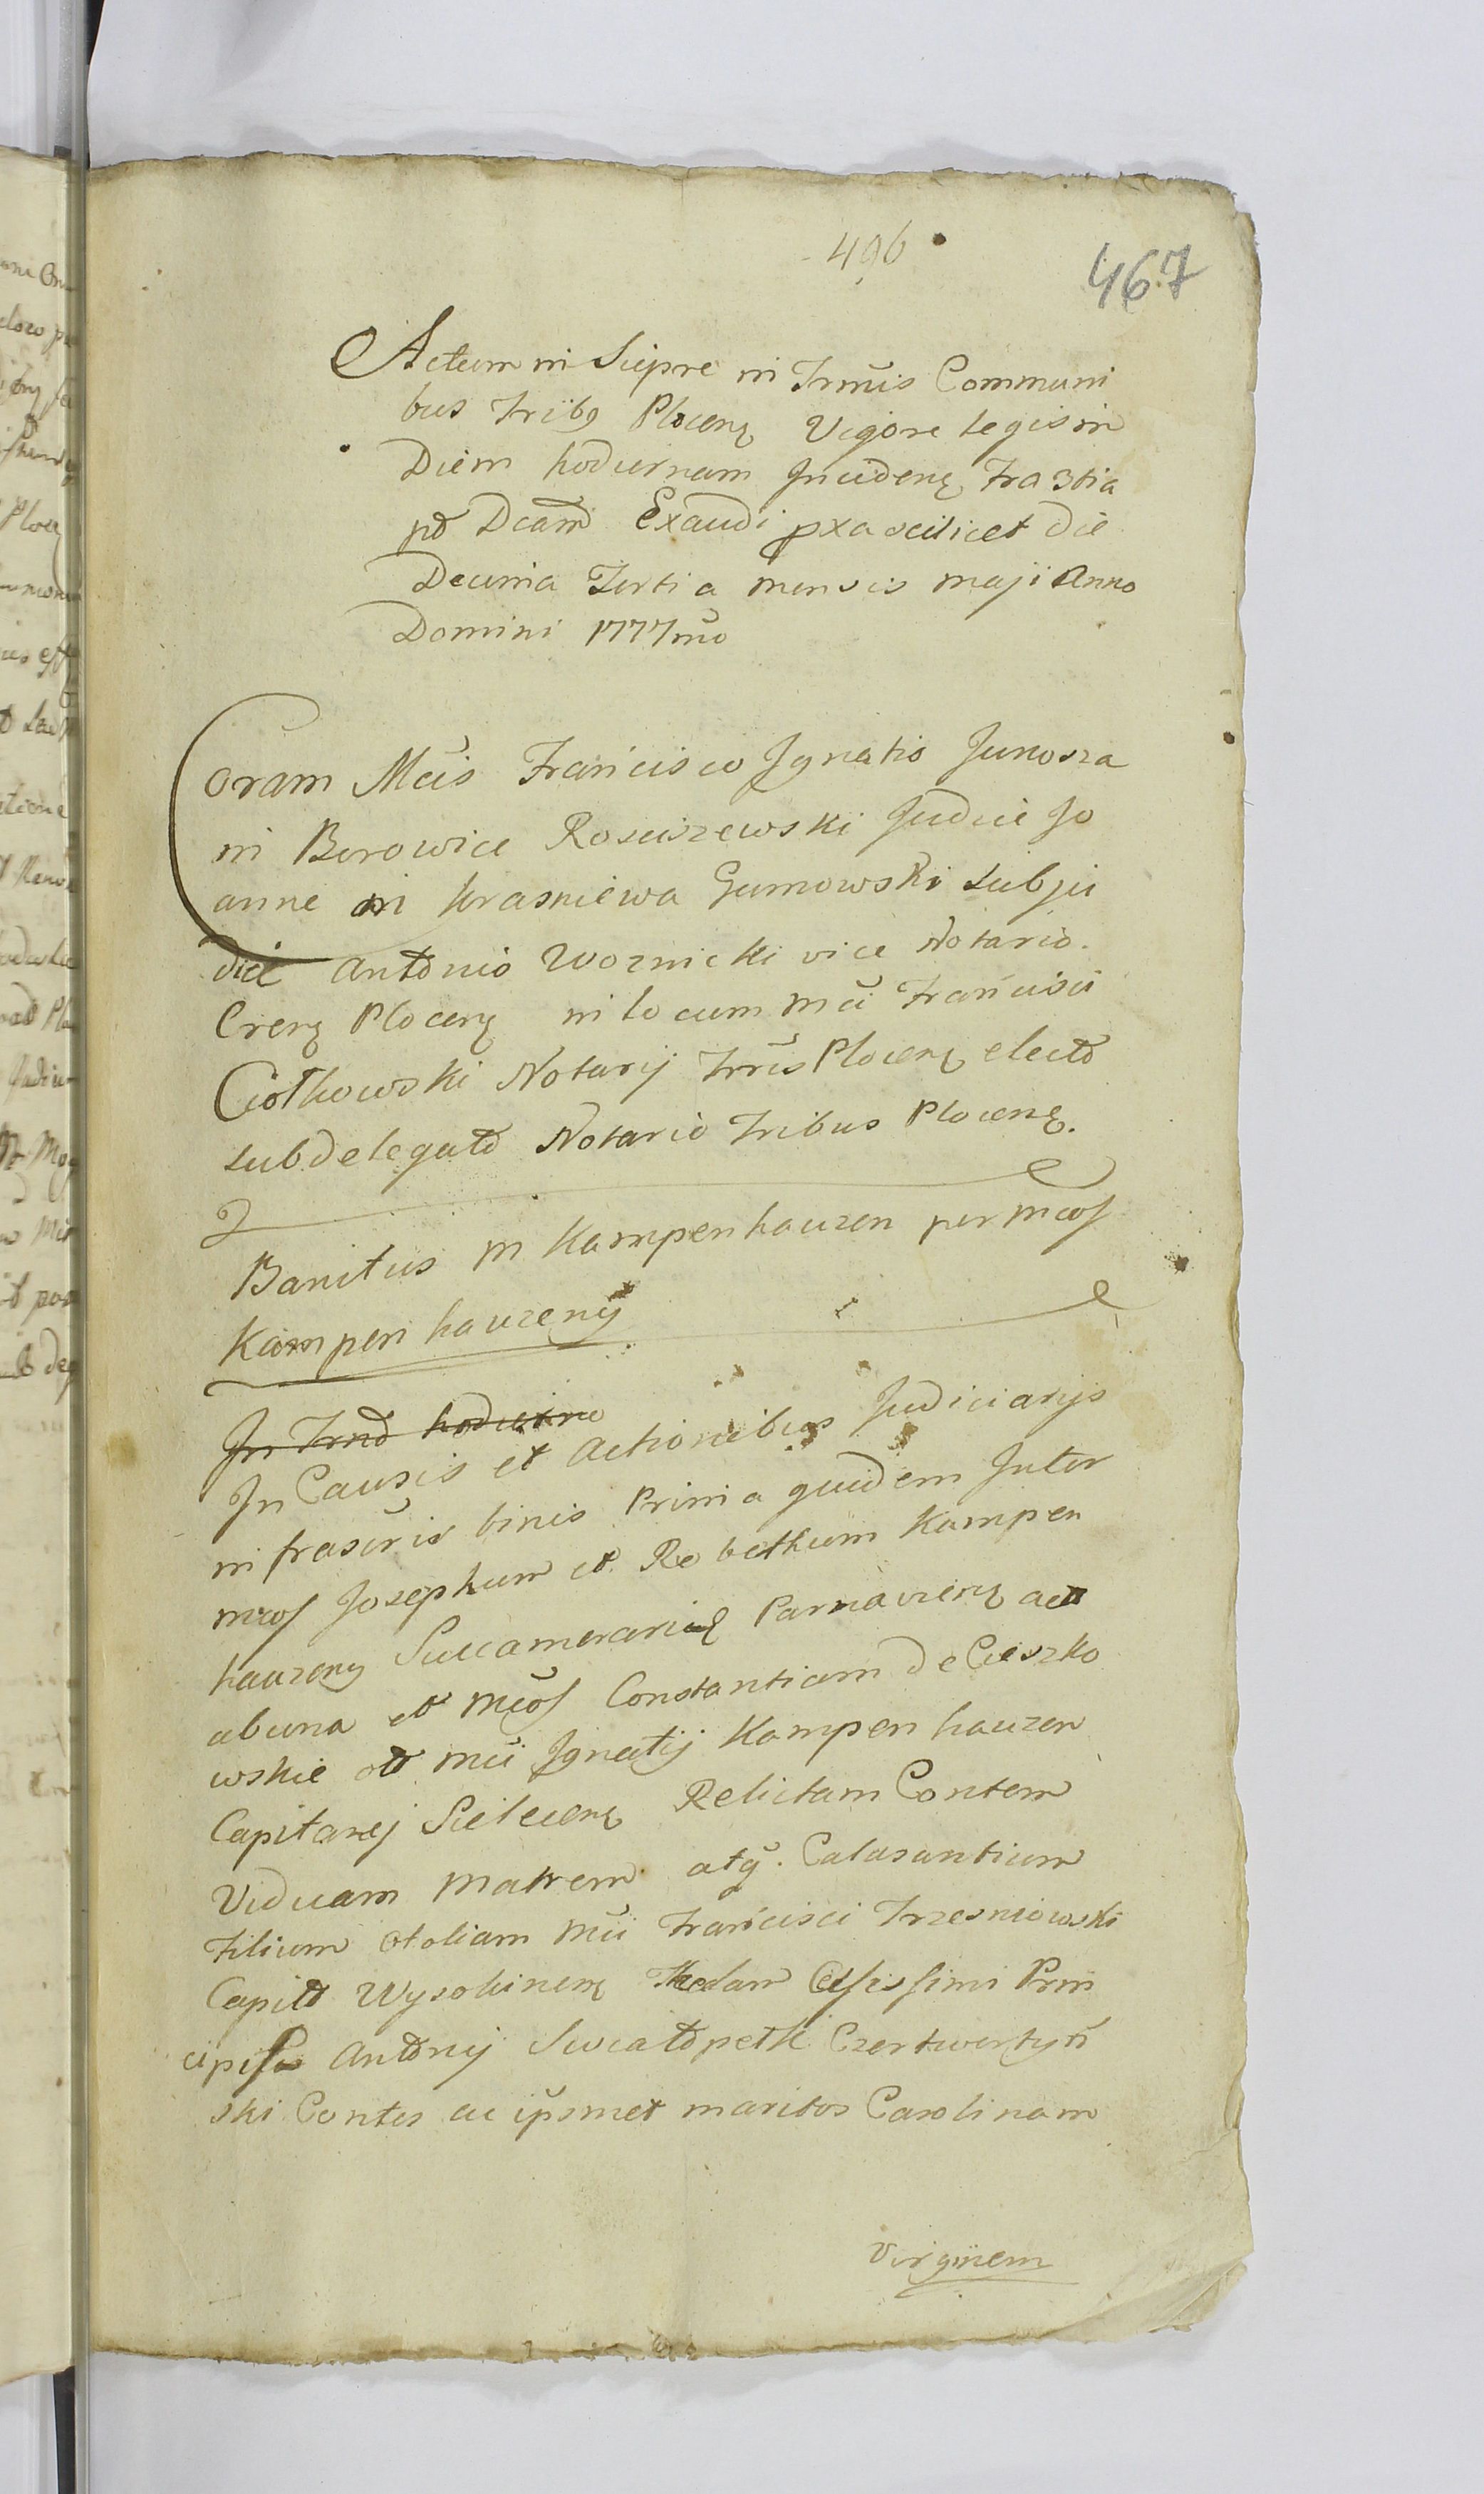 496
467
Actum in Siepre in Trmis Communi
bus Tribg Plocenę Vigore Legis in
Diem hodiernam Incidenę Fra 3tia
pt Dcam Exaudi pxa scilicet die
Decima Tertia mensis maji Anno
Domini 1777mo
Coram Mcis Francisco Ignatio Junosza
in Borowice Rosciszewski Judice Jo
anne in Krasniewa Gumowski Subju
dice Antonio Woznicki vice Notario
Crenę Plocenę in locum mci Francisci
Ciołkowski Notarij Trris Plocenę electo
subdelegato Notario Tribus Plocenę.
Banitus M Kampenhauzen per mcos
Kampenhauzeny
In Trno hodierno
In Causis et Actionibus Judiciarijs
infrascris binis Prima quidem Inter
mcos Josephum et Robethum Kampen
hauzeny Succamerarię Parnavienę act
ab una et mcos Constantiam de Cieszko
wskie ot mci Ignatij Kampenhauzen
Capitanej Sielecenę Relictam Contem
Viduam Matrem atq. Calasantium
Filium otoliam mci Francisci Trzesniowski
Capit Wysokinenę Celsissimi Prin
cipis Antonij Swiatopełk Czertwertyń
ski Contes ac ipsmet maritos Carolinam
Virginem